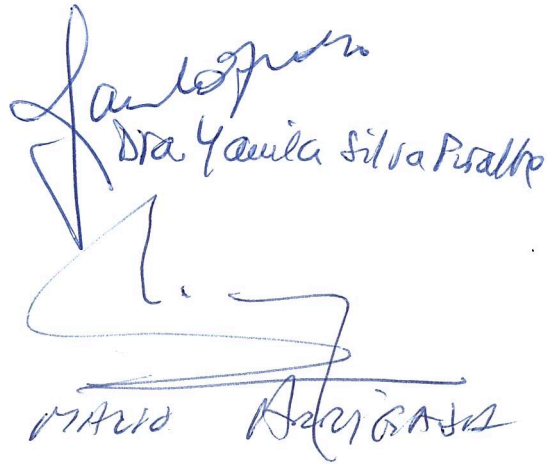 Dra Yamila Silva Peralta
MARIO ARRIGADA